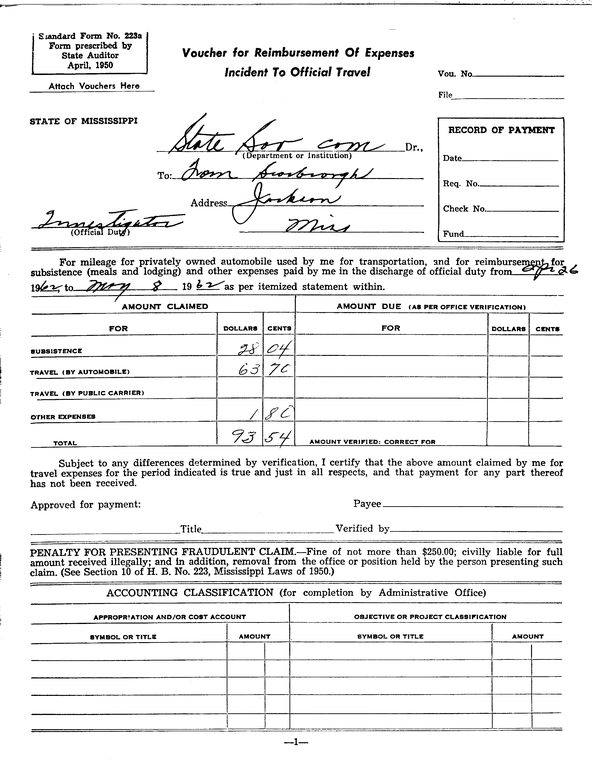 Standard Form No. 223a
Form prescribed by
State Auditor
April, 1950
Attach Vouchers Here
Voucher for Reimbursement Of Expenses
Incident To Official Travel
Vou. No.
File
STATE OF MISSISSIPPI
State Sov com Dr.,
(Department or Institution)
To: From Scarbrough
Address Jackson
Miss
Investigator
(Official Duty)
RECORD OF PAYMENT
Date
Req. No.
Check No.
Fund
For mileage for privately owned automobile used by me for transportation, and for reimbursement for
subsistence (meals and lodging) and other expenses paid by me in the discharge of official duty from Apr 26
1962, to May 8 1962 as per itemized statement within.
AMOUNT CLAIMED AMOUNT DUE (AS PER OFFICE VERIFICATION)
FOR DOLLARS CENTS FOR DOLLARS CENTS
SUBSISTENCE 28 04
TRAVEL (BY AUTOMOBILE) 63 70
TRAVEL (BY PUBLIC CARRIER)
OTHER EXPENSES 1 80
TOTAL 93 54 AMOUNT VERIFIED: CORRECT FOR
Subject to any differences determined by verification, I certify that the above amount claimed by me for
travel expenses for the period indicated is true and just in all respects, and that payment for any part thereof
has not been received.
Approved for payment: Payee
Title Verified by
PENALTY FOR PRESENTING FRAUDULENT CLAIM.—Fine of not more than $250.00; civilly liable for full
amount received illegally; and in addition, removal from the office or position held by the person presenting such
claim. (See Section 10 of H. B. No. 223, Mississippi Laws of 1950.)
ACCOUNTING CLASSIFICATION (for completion by Administrative Office)
APPROPRIATION AND/OR COST ACCOUNT OBJECTIVE OR PROJECT CLASSIFICATION
SYMBOL OR TITLE AMOUNT SYMBOL OR TITLE AMOUNT
—1—